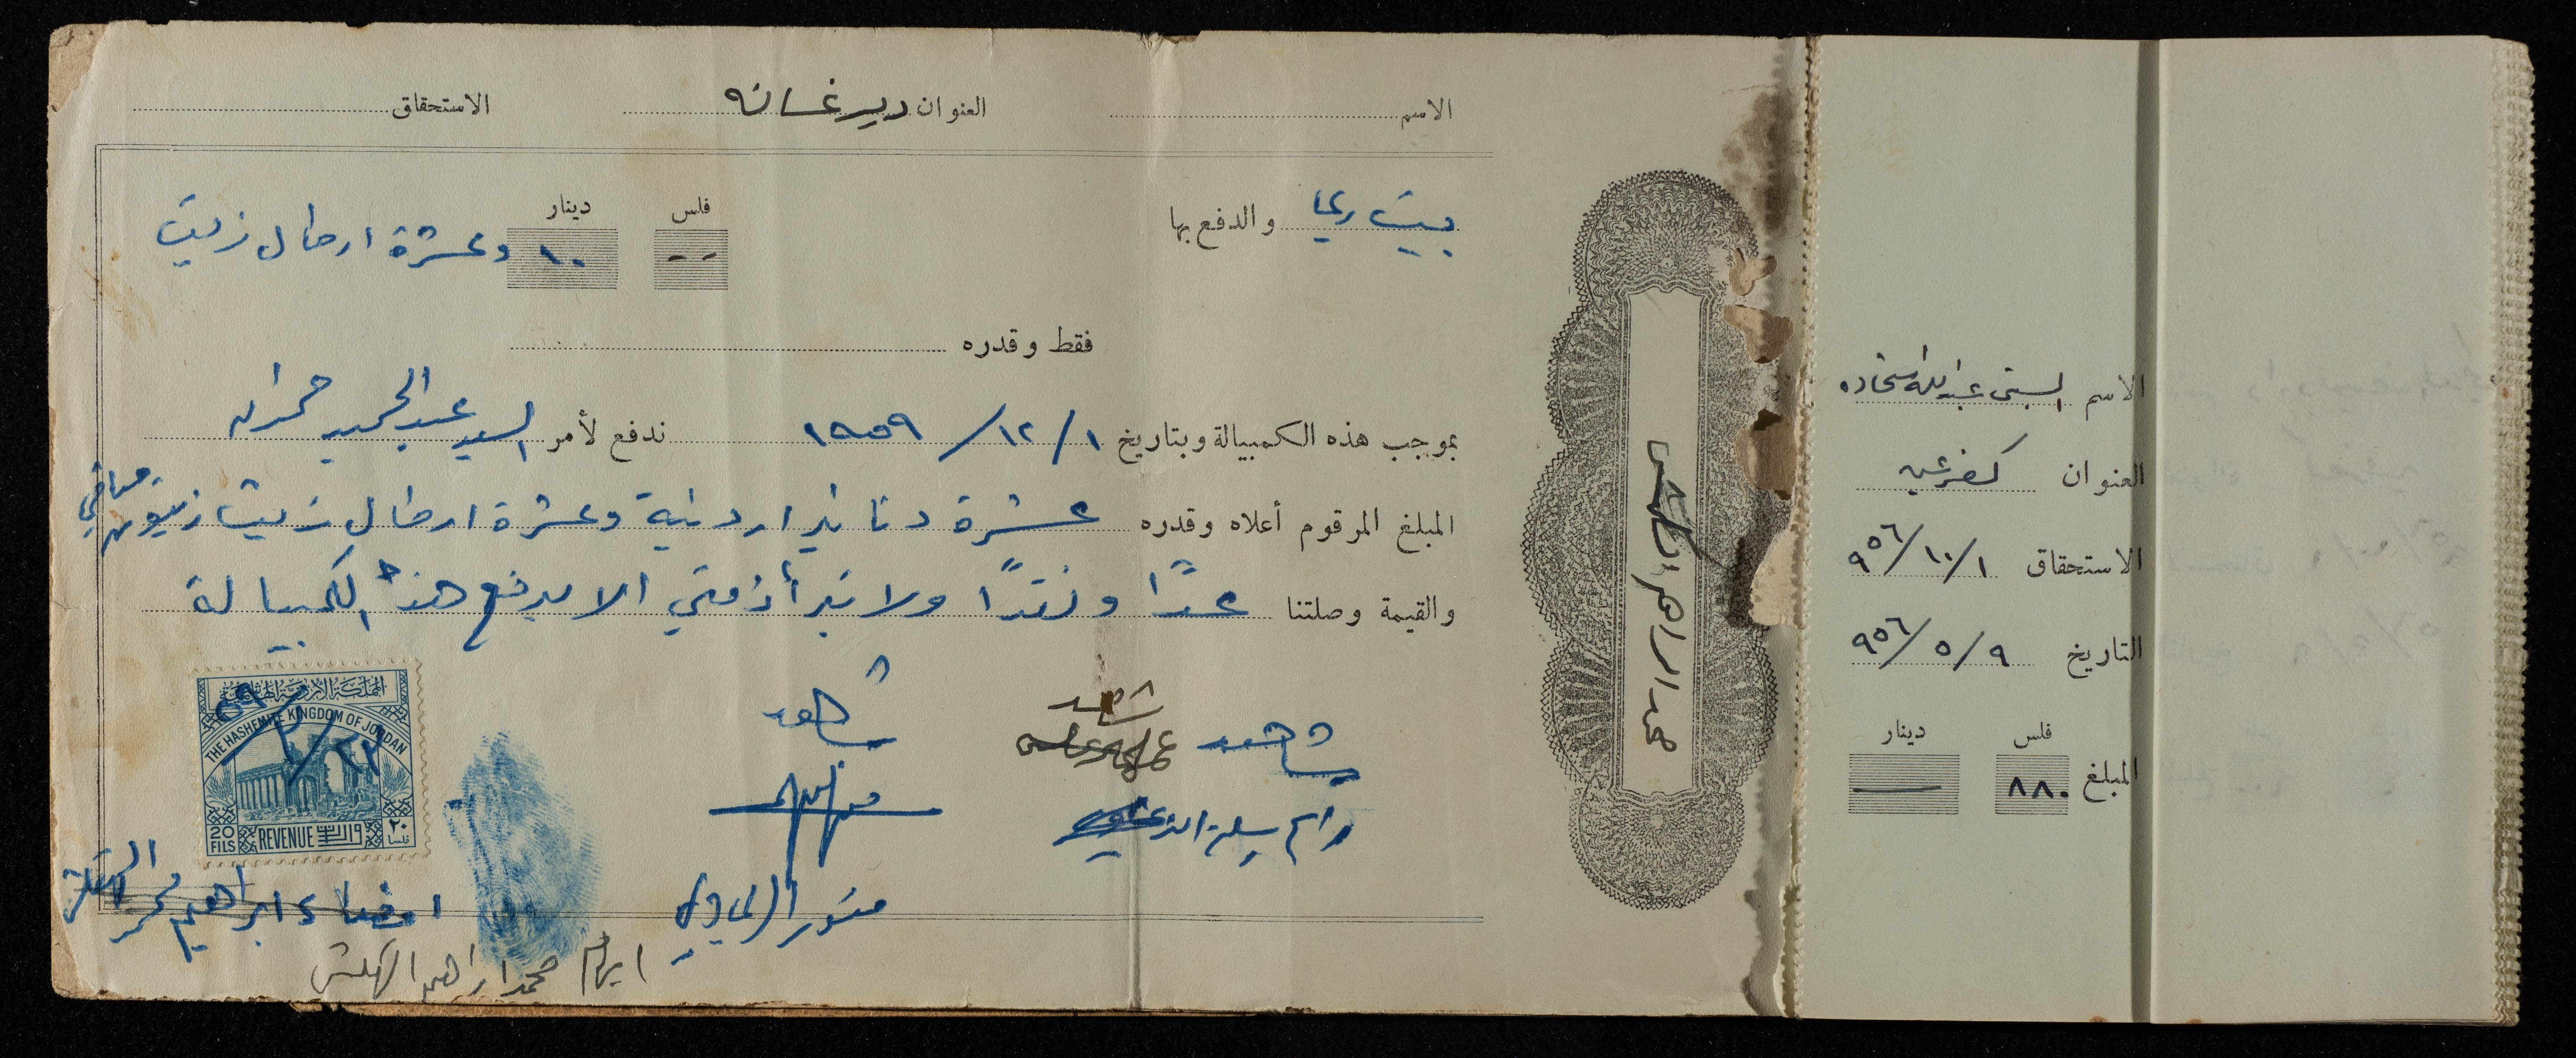 الاسم
العنوان دير غسانه
الاستحقاق
بيت ريما والدفع بها
فلس دينار
-- ١٠ وعشرة ارطال زيت
فقط وقدره
بموجب هذه الكمبيالة وبتاريخ ١/ ١٢/ ١٩٥٩ ندفع لأمر السيد عبد الحميد حمدان
المبلغ المرقوم أعلاه وقدره عشرة دنانير اردنية وعشرة ارطال زيت زيتون صافي
والقيمة وصلتنا عدًا ونقدًا ولا تبرأ ذمتي الا بدفع هذه الكمبيالة
شاهد
شاهد
شاهد
منور الريماوي
المملكة الأردنية الهاشمية
THE HASHEMITE KINGDOM OF JORDAN
٢٢/٢/٥٩
20 FILS
REVENUE
٢٠ فلسا
امضاء ابراهيم محمد
ابهام محمد ابراهيم
محمد ابراهيم
الاسم عبدالله شحاده
العنوان كفرعين
الاستحقاق ١/ ١٠/ ٩٥٦
التاريخ ٩/ ٥/ ٩٥٦
فلس دينار
المبلغ ٨٨٠ —